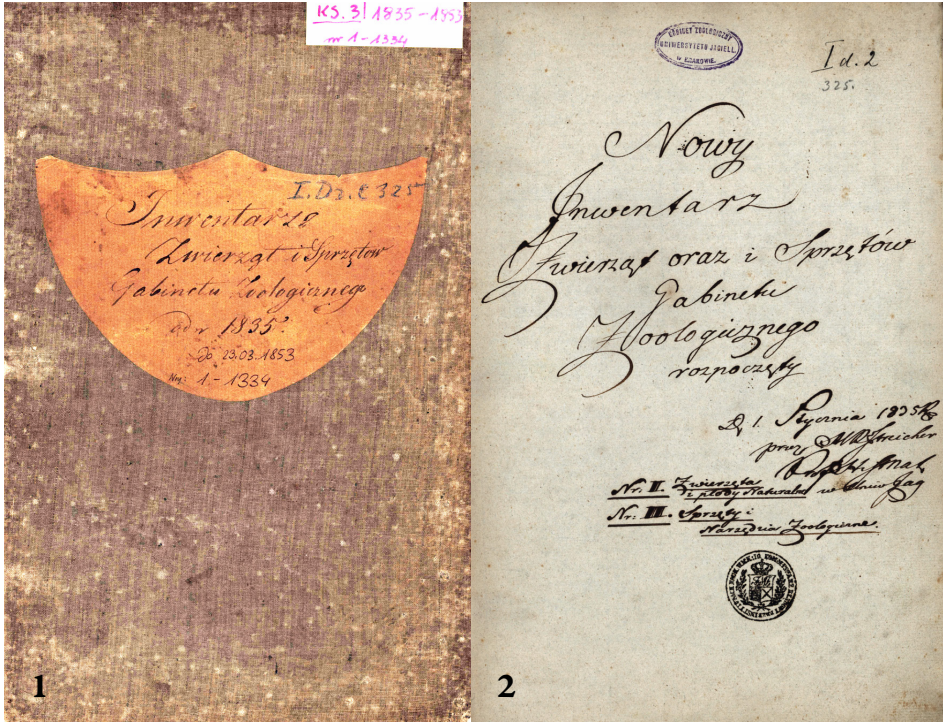 KS. 3 | 1835-1853
nr 1-1334
I. Dz. č 325
Inwentarze
Zwierząt i Sprzętow
Gabinetu Zoologicznego
od r 1835.
do 23.03.1853
Nry: 1.-1334
1
GABINET ZOOLOGICZNY
UNIWERSYTETU JAGIELL.
W KRAKOWIE.
I d. 2
325.
Nowy
Inwentarz
Zwierząt oraz i Sprzętów
Gabinetu
Zoologicznego
rozpoczęty
D. 1. Stycznia 1835 R
przez
w Uniw Jag
Nr. II. Zwierzęta
i płody Naturalne
Nr. III. Sprzęty i
Narzędzia Zoologiczne.
2